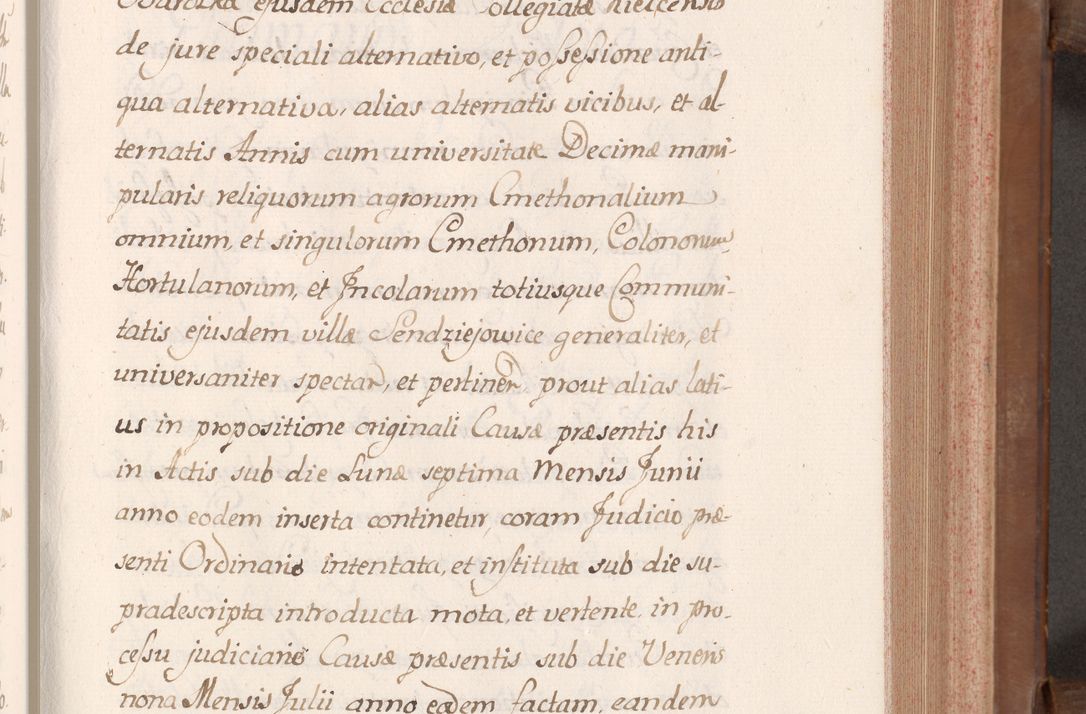 ejusdem Ecclesiæ Collegiatæ Kielcensis
de jure speciali alternativo, et possessione anti-
qua alternativa, alias alternatis vicibus, et al-
ternatis Annis cum universitate Decimæ mani-
pularis reliquorum agrorum Cmethonalium
omnium, et singulorum Cmethonum, Colonorum,
Hortulanorum, et Incolarum totiusque Communi-
tatis ejusdem villæ Sendziejowice generaliter, et
universaniter spectan, et pertinen prout alias lati-
us in propositione originali Causæ præsentis his
in Actis sub die Lunæ septima Mensis Junii
anno eodem inserta continetur, coram Judicio præ-
senti Ordinario intentata, et instituta sub die su-
pradescripta introducta mota, et vertente in pro-
cessu judiciario Causæ præsentis sub die Veneris
nona Mensis Julii anno eodem factam, eandem